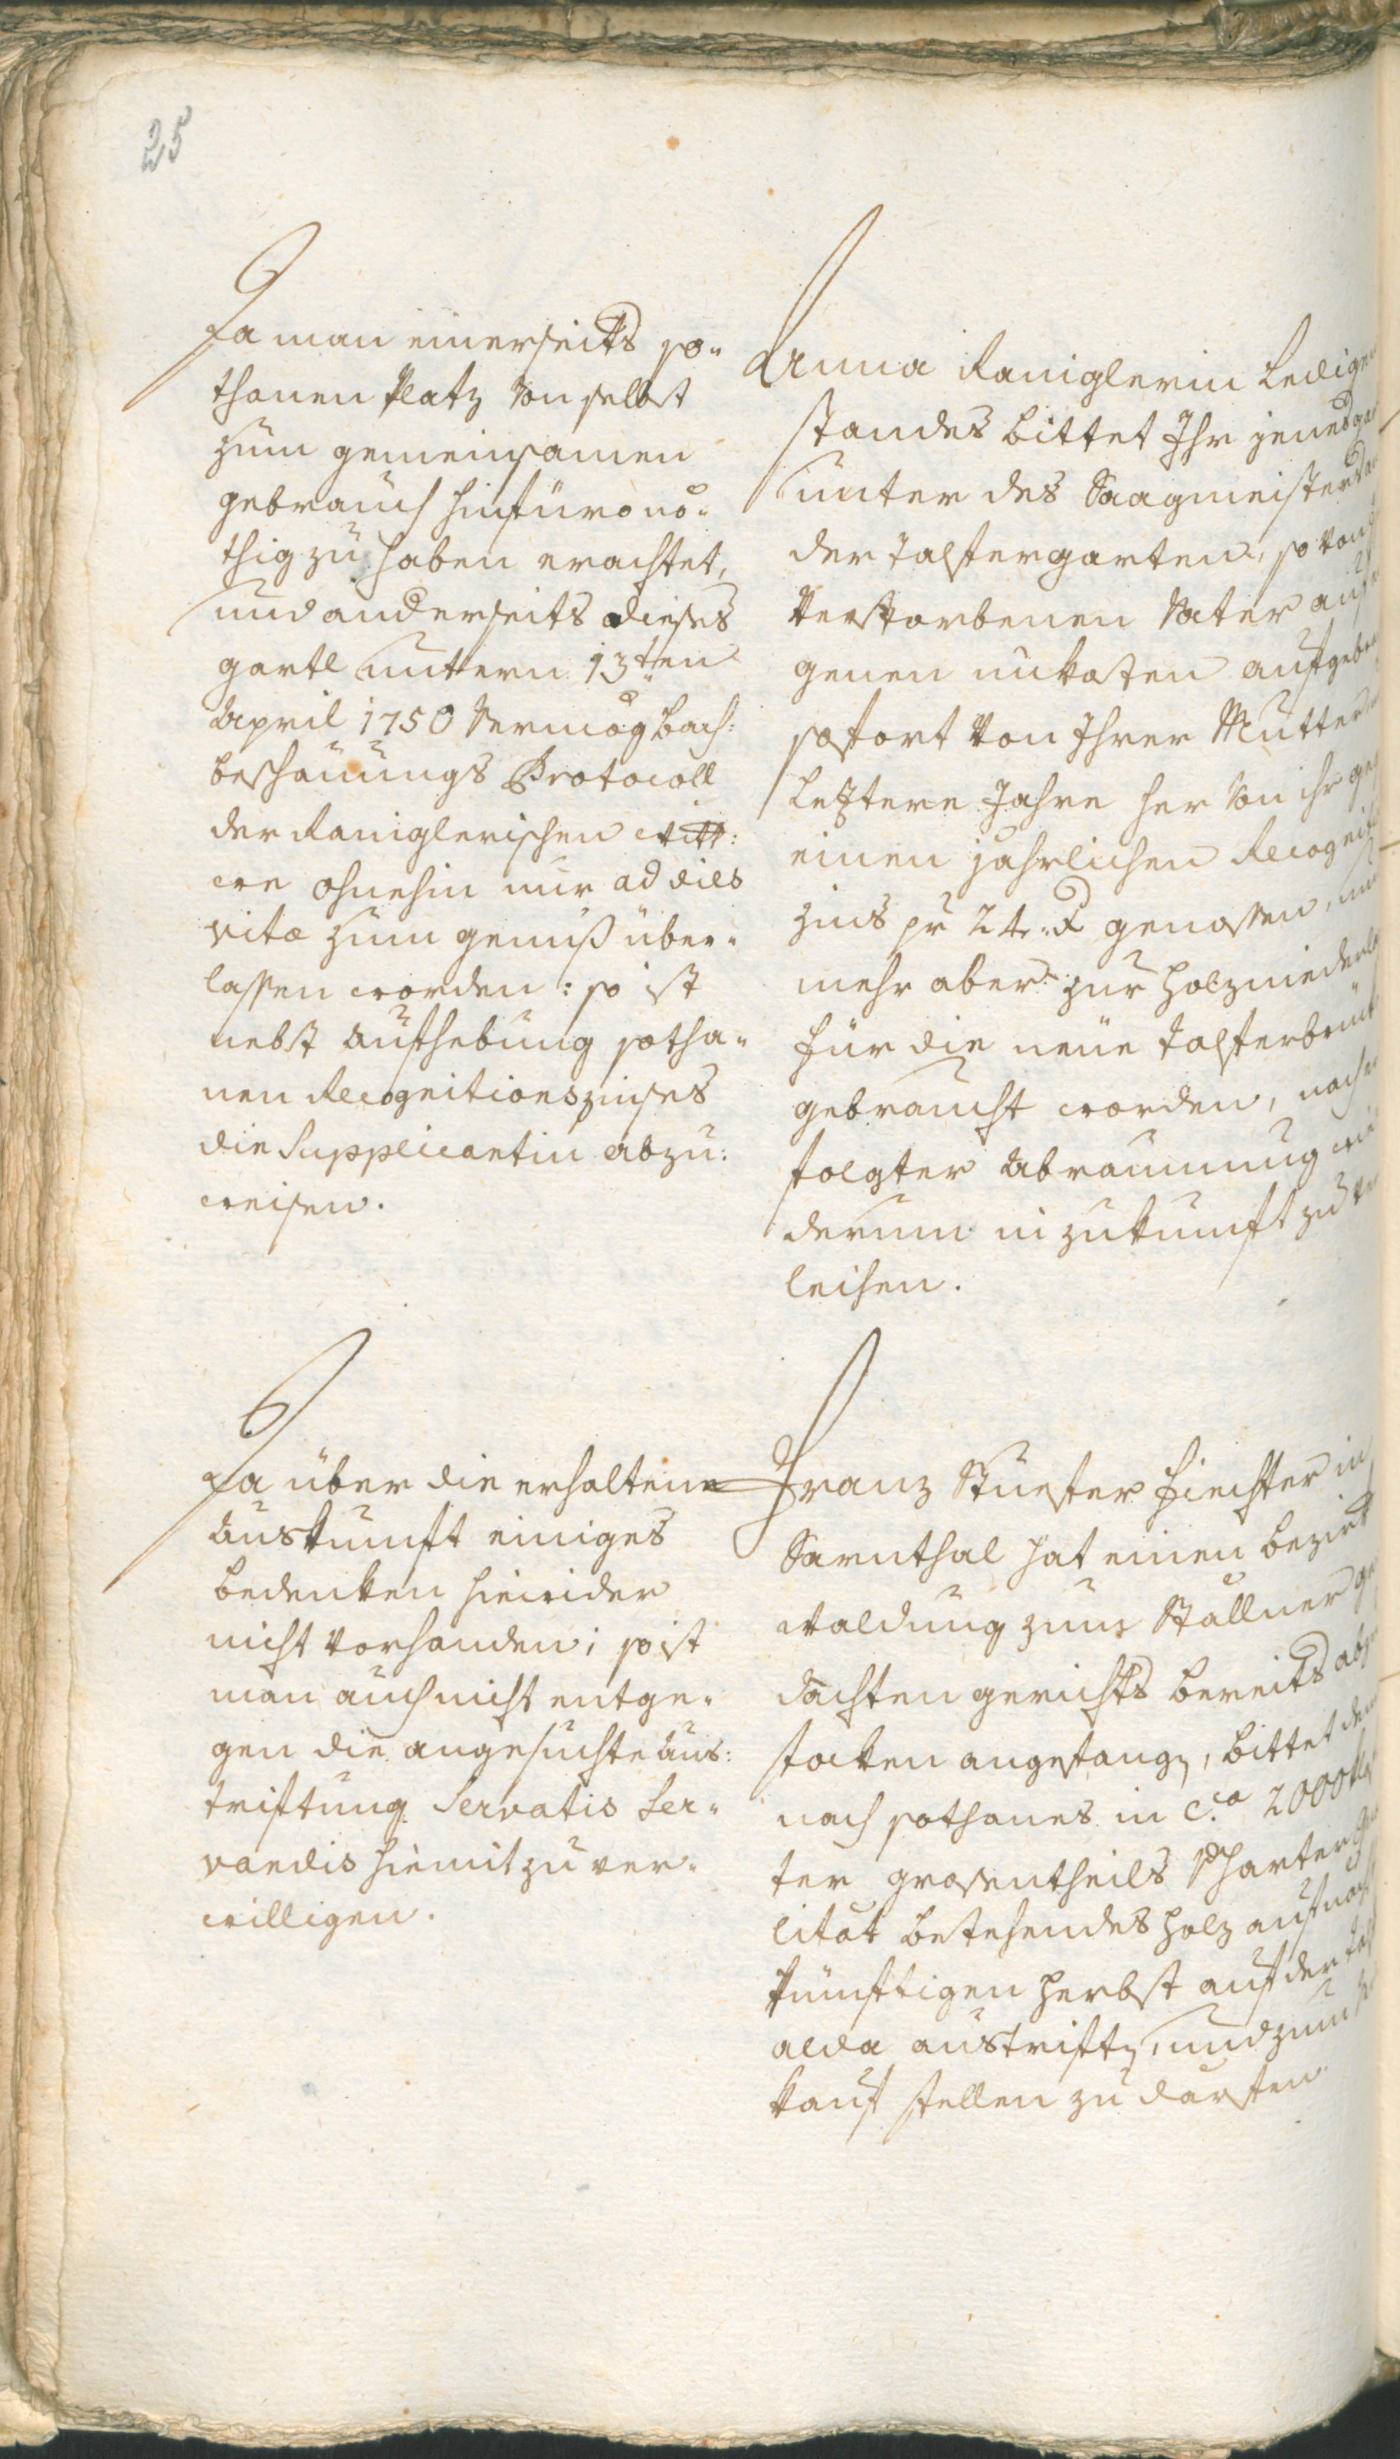 25
Da man einerseits so-
thanen Platz von selbst
zum gemeinsamen
gebrauch hinfüro nö-
thig zu haben erachtet,
und anderseits dieses
gartl unterm 13ten
April 1750 Vermög bach:
beschauungs Protocoll
der Raniglerischen Witt:
we ohnehin nur ad dies
vitæ zum genuß über-
lassen worden: so ist
nebst aufhebung sotha-
nen Recognitionszinses
die Supplicantin abzu:
weisen.
Anna Raniglerin Ledigen
standes bittet Ihr jenes
unter des Saagmeisters
der Talfergarten, so von
Verstorbenen Vater auf
genen unkosten aufgeb
sofort von Ihrer Mutter
Leztere Jahre her von ihr
einen jahrlichen Recogniti
zins pr 24 x genossen, nun
mehr aber zur Holzniederla
für die neue Talferbruk
gebraucht worden, nach
folgter Abraumung wie
derum in zukunft zu ver
leihen.
Da über die erhaltene
Auskunft einiges
bedenken hiewider
nicht vorhanden; so ist
man auch nicht entge-
gen die angesuchte aus:
triftung Servatis Ser-
vandis hiemit zu ver-
willigen.
Franz Stuefer Fiechter in
Sarnthal hat einen bezirk
Waldung zum Stallner ge
dachten gerichts bereits abzu
stoken angefangen, bittet
nach sothanes in c.a 2000
ter grosentheils Scharter
litat bestehendes holz auf nach
künftigen Herbst auf der
alda austriften, und zum
kauf stellen zu darfen.